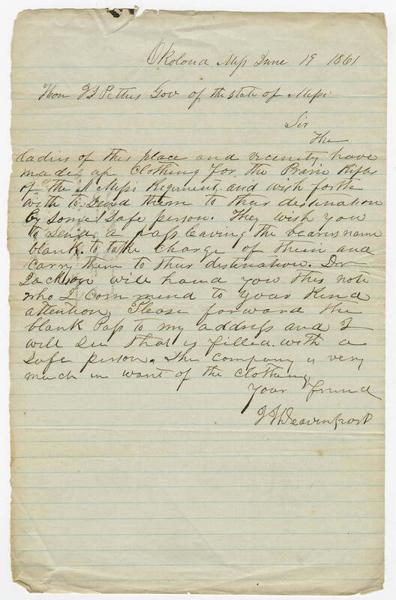 Okolona Mip June 19 1861
Hon J J Pettus Gov of the state of Mipi
Sir
The
Ladies of this place and vecinity have
made up clothing for the Prairi Rifles
of the 11 Mipi Regiment and wish forth
with to Send them to their destination
by some safe person. They wish you
to Send a pass leaving the bearers name
blank to take charge of them and
carry them to their destination. Dr
Jackson will hand you this note
who I Commend to your kind
attention Please forward the
blank Pass to my address and I
will see that is filled with a
safe person. The company is very
much in want of the clothing
Your friend